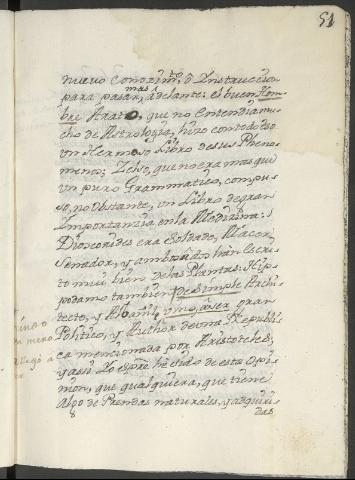 51
nuevo Conozim.to, ò Instruccion
para pasar mas adelante: el buen Hom-
bre Arato, que no entendia mu-
cho de Astrologia, hizo con todo eso
un Hermoso Libro de sus Pheno-
menos; Zelso, que no era mas que
un puro Grammatico, compu-
so, no obstante, un Libro de gran
Importanzia en la Medizina:
Dioscorides era Soldado, Macer
Senador, y ambos han Escri-
to mui bien de las Plantas: Hip-
podamo tambien de simple Archi-
tecto, y Albañil vino à ser gran
Politico, y Author de una Republi-
ca mencionada por Aristoteles,
y asi Yo siempre he sido de esta Opi-
nion, que qualquiera, que tiene
Algo de Prendas naturales, y adquiri-
das